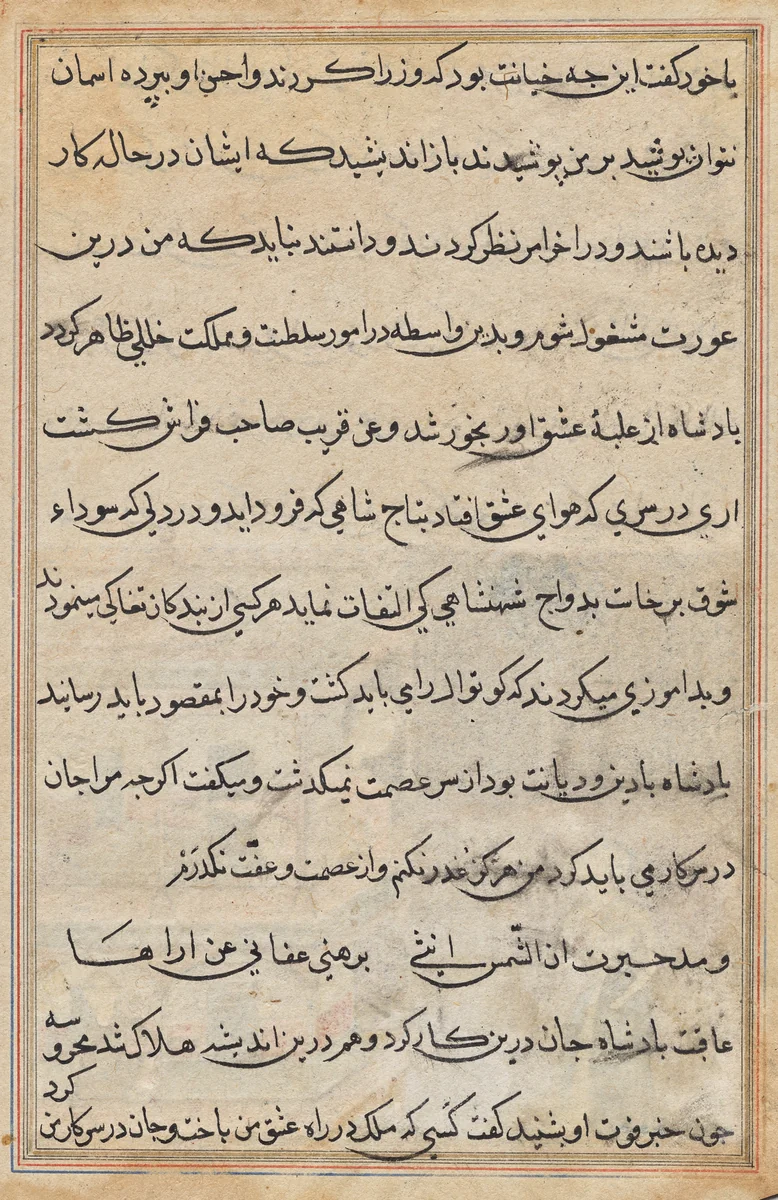 با خود کفت این جه خیانت بود که وزرا کردند و احسن او ببرده اسمان
نتوان پوشید بر من پوشیدند باز اندیشید که ایشان در حال کار
دیده باشند و در اخر امر نظر کردند و دانستند نباید که من درین
عورت مشغول شوم و بدین واسطه در امور سلطنت و مملکت خللی ظاهر کردد
بادشاه از غلبهٔ عشق او رنجور شد و عن قریب صاحب فراش کشت
اری در سری که هوای عشق افتاد بتاج شاهی که فرود اید و در دلی که سوداء
شوق برخات بدواج شهنشاهی کی التفات نماید هر کسی از بندکان تفاکی مینمودند
و بداموزی میکردند که کوتوال را می باید کشت و خود را بمقصود باید رسانید
بادشاه بادین و دیانت بود از سر عصمت نمیکدشت و میکفت اکر جه مرا جان
درین کار می باید کرد من هرکز غدر نکنم و از عصمت و عفّت نکدرم
و مد خبرت ان الشّمس انیثی برهنی عفانی عن اراها
عاقبت بادشاه جان درین کار کرد و هم درین اندیشه هلاک شد محروسه
جون خبر فوت او بشنید کفت کسی که ملک در راه عشق من باخت و جان در سر کار من کرد